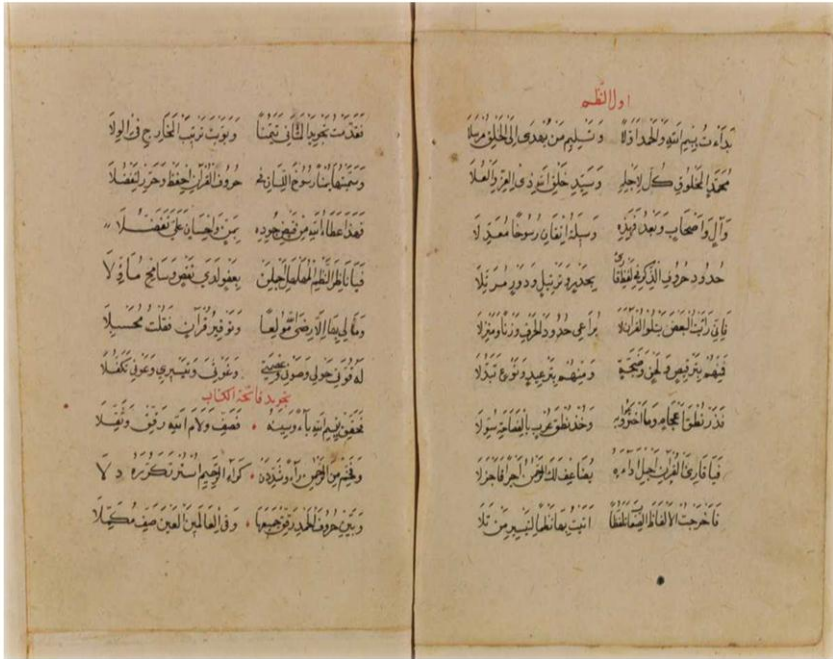 اول النظم
بَدَأْتُ بِبِسْمِ اللهِ وَالْحَمْدُ أَوَّلَا وَتَسْلِيمِ مَنْ يُهْدَى إِلَى الْخَلْقِ مُرْسَلَا
مُحَمَّدٍ الْمَخْلُوقِ كُلٌّ لِأَجْلِهِ وَسَيِّدِ خَلْقِ اللهِ ذِى الْعِزِّ وَالْعُلَا
وَآلٍ وَأَصْحَابٍ وَبَعْدُ فَهَذِهِ وَسِيلَةُ إِتْقَانٍ رُسُوخًا مُعَدِّلَا
حُدُودَ حُرُوفِ الذِّكْرِ فِي لَفْظِ قَارِئٍ بِحَدْرٍ وَتَرْتِيلٍ وَدَوْرٍ مُرَتِّلَا
فَإِنِّي رَأَيْتُ الْبَعْضَ يَتْلُو الْقُرَانَ لَا يُرَاعِي حُدُودَ الْحَرْفِ وَزْنًا وَمَنْزِلَا
فَمِنْهُمْ بِتَرْقِيصٍ وَلَحْنٍ وَضَجَّةٍ وَمِنْهُمْ بِتَرْعِيدٍ وَنَوْحٍ تَبَدَّلَا
فَذَرْ نُطْقَ أَعْجَامٍ وَمَا اخْتَرَعُوا بِهِ وَخُذْ نُطْقَ عُرْبٍ بِالْفَصَاحَةِ سُوِّلَا
فَيَا قَارِئَ الْقُرْآنِ أَجْمِلْ أَدَاءَهُ يُضَاعِفْ لَكَ الرَّحْمٰنُ أَجْرًا فَأَجْزَلَا
فَأَخْرَجْتُ الْأَلْفَاظَ اَتَيْتُ بِهَا نَظْمًا لِتَيْسِيرِ مَنْ تَلَا
فَقَدَّمْتُ تَجْوِيدَ الْمَثَانِي تَيَمُّنًا وَبَوَّبْتُ تَرْتِيبَ الْمَخَارِجِ فِي الْوِلَا
وَسَمَّيْتُهَا رُسُوخَ اللِّسَانِ فِي حُرُوفِ الْقُرَانِ احْفَظْ وَحَرِّرْ لِتَفْضُلَا
فَهَذَا عَطَاءُ اللهِ مِنْ فَيْضِ جُودِهِ بِمَنٍّ وَإِحْسَانٍ عَلَيَّ تَفَضُّلَا
فَيَا نَاظِرَ النَّظْمِ الْمُهَلْهَلِ أَجْمِلَنْ بِعَفْوٍ لَدَى نَقْصٍ وَسَامِحْ مُأَوِّلَا
وَمَا لِي بِهَا إِلَّا رِضَى اللهِ مُولِعًا وَتَوْقِيرُ قُرْآنٍ فَقُلْتُ مُحَسْبِلَا
لَهُ قُوَّتِي حَوْلِي وَصَوْنِي وَعِصْمَتِي وَغَوْثِي وَتَيْسِيرِي وَعَوْنِي تَكَفَّلَا
تجويد فاتحة الكتاب
بِحَقِّقْ بِبِسْمِ اللهِ بَاءً وَسِينَهُ فَصَفِّ وَلَامَ اللهِ رَقِّقْ وَثَقِّلَا
وَفَخِّمْ مِنَ الرَّحْمٰنِ رَاءً وَشَدِّدَنْ كَرَاءِ الرَّحِيمِ اسْتُرْ تَكَرُّرَهُ دِلَا
وَبَيِّنْ حُرُوفَ الْحَمْدِ رَقِّقْ جَمِيعَهَا وَفِي الْعَالَمِينَ الْعَيْنَ صَفِّ مُكَمَّلَا